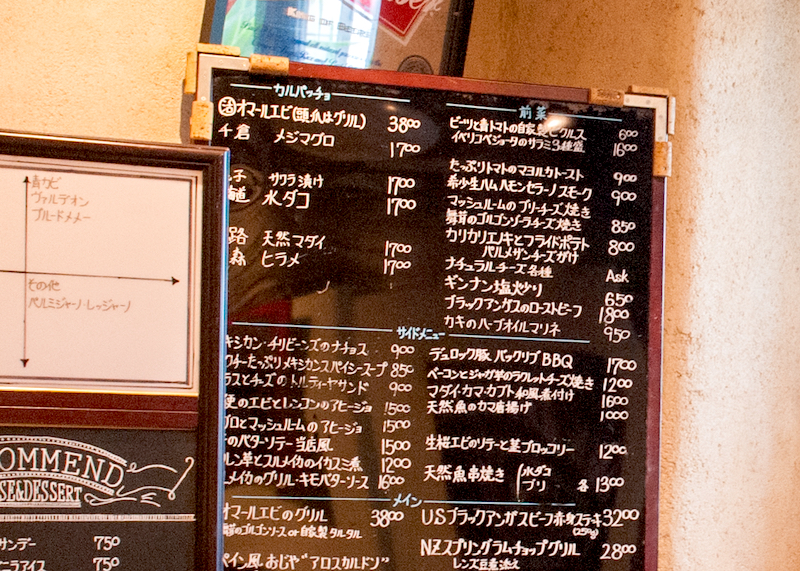 KING OF BEERS
カルパッチョ
活オマールエビ(頭爪はグリル) 3800
千倉 メジマグロ 1700
子 サワラ漬け 1700
道 水ダコ 1700
路 天然マダイ 1700
森 ヒラメ 1700
前菜
ビーツと青トマトの自家製ピクルス 600
イベリコベジョータのサラミ3種盛 1600
たっぷりトマトのマヨルカトースト 900
希少生ハム ハモンセラーノ スモーク 900
マッシュルームのブリーチーズ焼き
舞茸のゴルゴンゾーラチーズ焼き 850
カリカリエノキとフライドポテト 800
パルメザンチーズがけ
ナチュラルチーズ各種 Ask
ギンナン塩炒り 650
ブラックアンガスのローストビーフ 1800
カキのハーブオイルマリネ 950
サイドメニュー
キシカン・チリビーンズのナチョス 900
クチーたっぷりメキシカンスパイシースープ 850
ラスとチーズのトルティーヤサンド 900
更のエビとレンコンのアヒージョ 1500
プロとマッシュルームのアヒージョ 1500
のバターソテー当店風 1500
レン草とスルメイカのイカスミ煮 1200
メイカのグリル・キモバターソース 1600
デュロック豚 バックリブBBQ 1700
ベーコンとジャガ芋のラクレットチーズ焼き 1200
マダイ・カマ・カブト和風煮付け 1600
天然魚のカマ唐揚げ 1000
生桜エビのソテーと茎ブロッコリー 1200
天然魚串焼き (水ダコ
ブリ 各1300
メイン
オマールエビのグリル 3800
舞茸のゴルゴンソース or 自家製タルタル
ペイン風おじや"アロスカルドソ"
USブラックアンガスビーフ赤身ステーキ 3200
(250g)
NZスプリングラムチョップグリル 2800
レンズ豆煮添え
青カビ
ヴァルデオン
ブルードメメー
その他
パルミジャーノ・レッジャーノ
OMMEND
SE&DESSERT
サンデー 750
ニラアイス 750